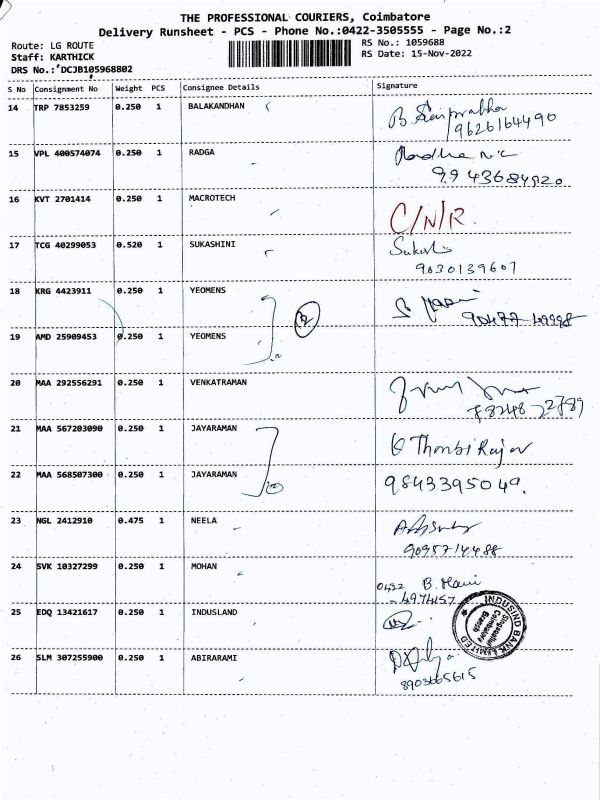 THE PROFESSIONAL COURIERS, Coimbatore
Delivery Runsheet - PCS - Phone No.:0422-3505555 - Page No.:2
Route: LG ROUTE
RS No.: 1059688
Staff: KARTHICK
RS Date: 15-Nov-2022
DRS No.: DCJB105968802
S No Consignment No Weight PCS Consignee Details Signature
14 TRP 7853259 0.250 1 BALAKANDHAN
9626164490
15 VPL 400574074 0.250 1 RADGA Radha N.C
99 43684920
16 KVT 2701414 0.250 1 MACROTECH C/N/R.
17 TCG 40299053 0.520 1 SUKASHINI
9030139607
18 KRG 4423911 0.250 1 YEOMENS
2
19 AMD 25909453 0.250 1 YEOMENS
20 MAA 292556291 0.250 1 VENKATRAMAN
21 MAA 567203090 0.250 1 JAYARAMAN
22 MAA 568507300 0.250 1 JAYARAMAN 9843395049.
23 NGL 2412910 0.475 1 NEELA
9095714488
24 SVK 10327299 0.250 1 MOHAN 0422 B. Mani
4974157
25 EDQ 13421617 0.250 1 INDUSLAND
INDUSIND BANK LIMITED
Coimbatore
Branch
26 SLM 307255900 0.250 1 ABIRARAMI
8903665615